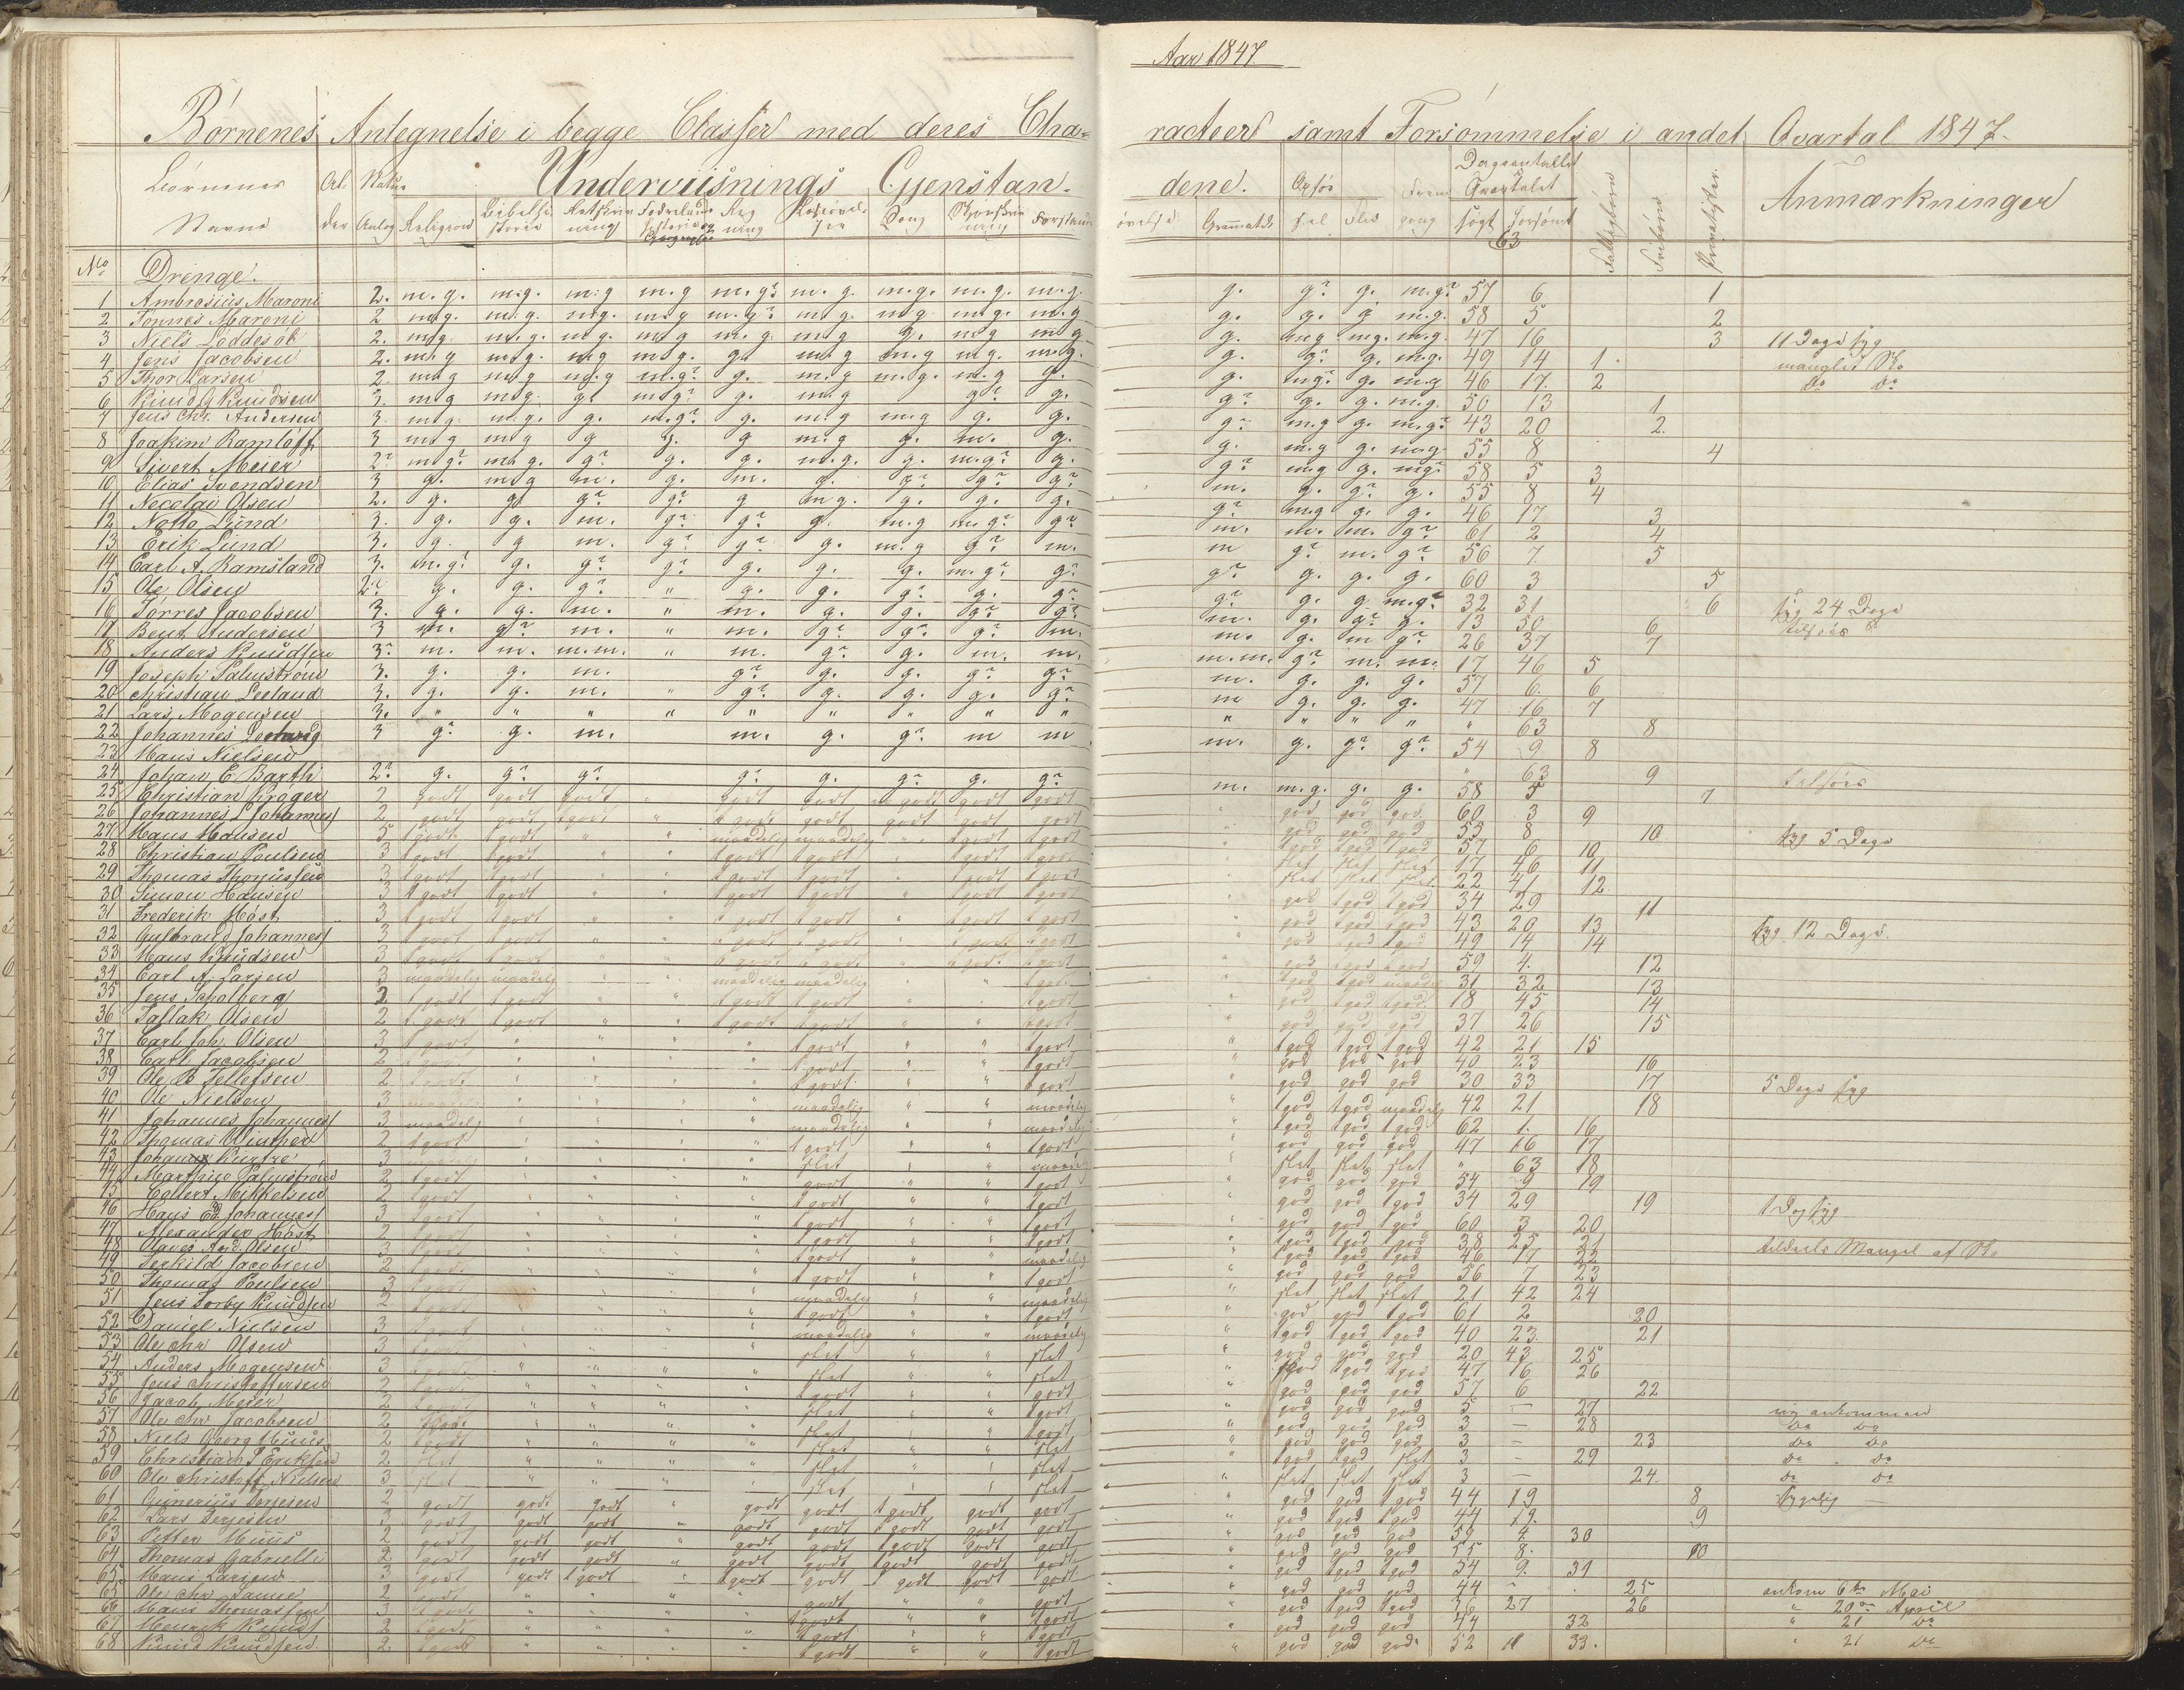 Aar 1847
Børnenes Antegnelse i begge Classer med deres Cha= racteer samt Forsømmelse i andet Qvartal 1847.
Børnenes Al Natur Underviisnings Gjenstan- dene. Opfør Frem Dagsantallet Qvartalet Anmærkninger
Navne der Anlæg Religion Bibelhi storie Retskriv ning Fædrelands historie og Geographie Reg ning Læseøvel ser Sang Skjønskriv ning Forstands øvelse Grammatik sel Flid gang søgt forsømt
63
No Drenge.
1 Ambrosius Maroni 2. m.g. m.g. m.g m.g m.g? m.g. m.g. m.g. m.g. g. g? g. m.g? 57 6 1
2 Tønnes Maroni 2 m.g. m.g. m.g. m.g m.g? m.g. m.g. m.g. m.g g. g. g m.g. 58 5 2
3 Niels Løddesøl 2. m.g. m.g. m.g. m.g m.g. m.g g. m.g m.g g. m.g m.g. m.g. 47 16 3 11 Dage syg
4 Jens Jacobsen 2. m.g m.g. m.g m.g. g. m.g m.g m.g. m.g. g. g? g. m.g. 49 14 1. manglet Sko
5 Thor Larsen 2. m.g m.g m.g m.g? g. m.g m.g. m.g g. g. m.g? g. m.g 46 17. 2 Do Do
6 Knud Knudsen 2. m.g m.g. g. m.g? g. m.g g? g. g? g. g. m.g. 50 13 1
7 Jens Chr. Andersen 3. m.g. m.g. g. m.g? g. m.g m.g g. g. g? m.g g. m.g? 43 20 2.
8 Joakim Ramløff 3 m.g m.g g g. g m.g g. m. g. g. m.g g. m.g. 55 8 4
9 Sivert Meier 2? m.g? m.g. g? g. g. m.g. g. m.g? g. g? m.g g. m.g? 58 5 3
10 Elias Svendsen 3 g. m.g m. g. m. g. g? g? g? m. g. g? g. 55 8 4
11 Necolai Olsen 2. g. g. g? g? g m.g. g. g. g. g? m.g g. g. 46 17 3
12 Notto Lund 3. g. g. m. g? g? g. m.g m.g? g? m. m. m. g? 61 2 4
13 Erik Lund 3. g. g m. g? g? g. m.g g? m. m g? m. g? 56 7. 5
14 Carl A. Ramsland 3. m.g? g. g? g? g. g. g. m.g? g? g? g. g. g. 60 3 5
15 Ole Olsen 2? g. g. g? " g. g. g? g. g? g? g. g m.g? 32 31 6 syg 24 Dage
16 Torres Jacobsen 3. g. g. m. " m. g. g. g? g? m. g. g? g. 13 50 6 tilsøes
17 Bent Andersen 3 m. g? m. " m. g? g? g? m. m. g. m g? 26 37 7
18 Anders Knudsen 3? m. m. m.m. " m. g? g. m. m. m.m. g? m. m. 17 46 5
19 Joseph Palmstrøm 3. g. g. m. g? g. g. g? g? m. g. g. g. 57 6. 6
20 Christian Leeland 3. g. g. m. " g? g. g. g. g? m g. g. g. 47 16 7
21 Lars Mogensen 3. " " " " " " " " " " " " " " 63 8
22 Johannes Ledwig 3 g? g. m. m. g. g? m m m. g. g? g? 54 9 8
23 Hans Nielsen " 63 9 tilsøes
24 Johan E Barth 2? g. g? g? g? g. g? g. g? m. m.g. g. g. 58 5 7
25 Christian Krøger 2 godt godt godt godt godt godt godt godt god god god 60 3 9
26 Johannes L Johannes 2 godt godt tgodt " tgodt godt godt godt godt god god god 55 8 10 syg 5 Dage
27 Hans Hansen tgodt tgodt " " maadelig maadelig " tgodt tgodt tgod tgod tgod 57 6 10
28 Christian Poulsen 3 tgodt tgodt " " tgodt tgodt " tgodt tgodt slet slet slet 17 46 11
29 Thomas Thomassen 3 tgodt tgodt " " tgodt tgodt " tgodt tgodt slet slet slet 22 41 12.
30 Simon Hansen 3 tgodt tgodt " " tgodt tgodt " tgodt tgodt god tgod tgod 34 29 11
31 Frederik Høst 3 tgodt tgodt " " tgodt tgodt " tgodt tgodt god tgod tgod 43 20 13 syg 12 Dage.
32 Gulbrand Johannes 3 tgodt tgodt " " tgodt tgodt " tgodt tgodt god tgod tgod 49 14 14
33 Hans Knudsen 3 tgodt tgodt " " tgodt tgodt " tgodt tgodt god tgod tgod 59 4. 12
34 Carl A. Larsen 3 maadelig maadelig maadelig maadelig tgodt tgod tgod maadelig 31 32 13
35 Jens Scholberg 2 tgodt tgodt " " tgodt tgodt tgodt god tgod tgod 18 45 14
36 Tallak Olsen 2 tgodt tgodt " " tgodt tgodt " " tgodt god god god 37 26 15
37 Carl Joh. Olsen 3 tgodt " " " " tgodt " " tgodt tgod tgod tgod 42 21 15
38 Carl Jacobsen 2 tgodt " " " " tgodt " " tgodt god god god 40 23 16
39 Ole B Tellefsen 2 tgodt " " " " tgodt " " tgodt god god god 30 33 17 5 Dage syg
40 Ole Nielsen 3 maadelig " " " " maadelig " " maadelig tgod tgod maadelig 42 21 18
41 Johannes Johannes 3 maadelig " " " " maadelig " " maadelig tgod tgod tgod 62 1. 16
42 Thomas Winther 2 tgodt " " " " tgodt " " tgodt god god god 47 16 17
43 Johan 3 " " " " slet " " maadelig slet slet slet " 63 18
44 Marthin Palmstrøm 2 tgodt " " " " godt " " tgodt god god god 54 9 19
45 Eilert Mikkelsen 2 tgodt " " " " tgodt " " tgodt god god tgod 34 29 19 1 Dag syg
46 Hans Ed. Johannes 3 tgodt " " " " tgodt " " tgodt god god tgod 60 3 20
47 Alexander Høst 2 tgodt " " " " tgodt " " tgodt tgod tgod tgod 38 25 21 tildeels Mangel af Sko
48 Olsen 3 tgodt " " " " tgodt " " maadelig tgod tgod tgod 46 17 22
49 Terkild Jacobsen 2 tgodt " " " " tgodt " " tgodt god god god 56 7 23
50 Thomas Poulsen 3 tgodt " " " " maadelig " " maadelig slet slet slet 21 42 24
51 Jens Torby Knudsen 2 tgodt " " " " tgodt " " tgodt god god tgod 61 2 20
52 Daniel Nielsen 3 tgodt " " " " maadelig " " maadelig tgod tgod tgod 40 23. 21
53 Ole Chr Olsen 3 tgodt " " " " slet " " slet god god god 20 43 25
54 Anders Mogensen 3 tgodt " " " " slet " " slet tgod tgod 47 16 26
55 Jens Christoffersen 2 tgodt " " " " tgodt " " godt god god god 57 6 22
56 Jacob Meier 2 tgodt " " " " slet " " tgodt god god god 5 — 27 ny ankommen
57 Ole Chr Jacobsen 2 " " " " slet " " tgodt god god god 3 — 28 Do Do
58 Niels Georg Muus 2 tgodt " " " " slet " " slet god god god 3 — 23 Do Do
59 Christian P Eriksen 2 slet " " " " slet " " slet tgod tgod slet 3 — 29 Do Do
60 Ole Christoff Nielsen 3 slet " " " " slet " " slet slet slet slet 3 — 24. Do Do
61 Gunerius Terjesen 2 godt godt godt " godt godt tgodt godt godt god god tgod 44 19 8 sygelig —
62 Lars Terjesen 3 godt godt godt " godt godt tgodt godt godt god tgod tgod 44 19. 9
63 Petter Muus 2 godt godt godt " godt godt tgodt godt godt god god god 59 4 30
64 Thomas Gabrielli 2 godt godt godt " godt godt tgodt godt godt god god god 55 8. 10
65 Hans Larsen 3 godt godt tgodt " tgodt godt tgodt godt godt god tgod tgod 54 9. 31
65 Ole Chr 2 godt " " " " godt " " godt god god god 44 - 25 ankom 6te Mai
66 Hans Thomassen 3 tgodt " " " " tgodt " " tgodt god tgod tgod 36 27 26 " 20de April
67 Henrik Knuds 2 tgodt " " " " tgodt " " tgodt god god god 44 32 " 21 Do
68 Knud Knudsen 2. tgodt " " " " tgodt " " tgodt god god god 52 11 33. " 21 Do